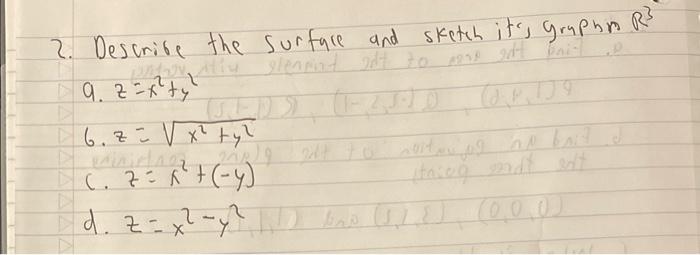 2. Describe the surface and sketch it's graph in R³
a. z = x² + y²
b. z = √x² + y²
c. z = x² + (-y)
d. z = x² - y²